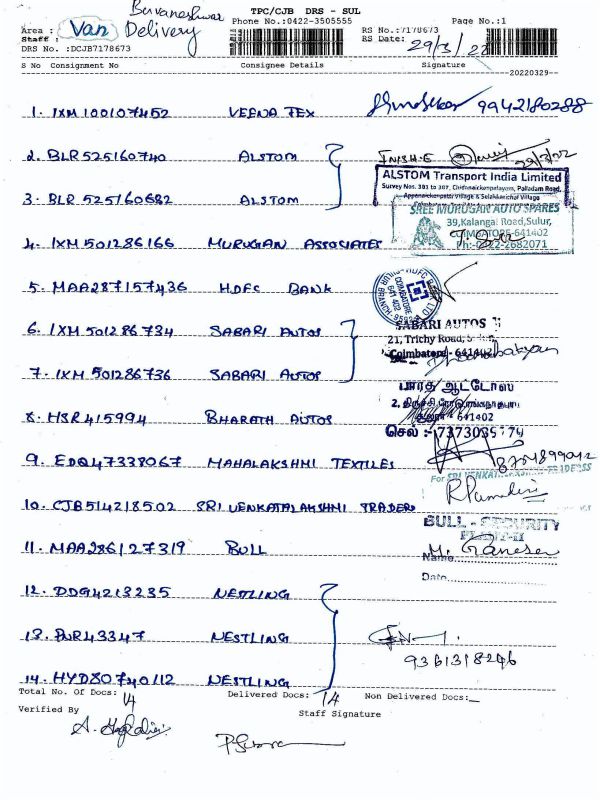 Buvaneshwar
TPC/CJB DRS - SUL
Area : Van Delivery
Phone No.:0422-3505555
Page No.:1
Staff :
RS No.:7178673
RS Date: 29/3/22
DRS No. :DCJB7178673
S No Consignment No Consignee Details Signature
20220329
1. IXM 100107452 VEENA TEX 9942180288
2. BLR 525160740 ALSTOM
29/3/22
ALSTOM Transport India Limited
Survey Nos. 381 to 387, Chidanaickenpalayam, Palladam Road,
3. BLR 525160682 ALSTOM
SREE MURUGAN AUTO SPARES
39,Kalangal Road,Sulur,
4. IXM 501286166 MURUGAN ASSOCIATES
Ph:-0422-2682071
5. MAA287157436 HDFC BANK
COIMBATORE
641 402
6. IXM 501286734 SABARI AUTOS
SABARI AUTOS
21, Trichy Road,
Coimbatore - 641402
7. IXM 501286736 SABARI AUTOS
பாரத் ஆட்டோஸ்
8. HSR415994 BHARATH AUTOS
641402
செல் :-
9. EDQ47338067 MAHALAKSHMI TEXTILES 8754899042
For SRI VENKATALAKSHMI TRADERSS
10. CJB514218502 SRI VENKATALAKSHMI TRADERS
BULL - SECURITY
PLANT-II
11. MAA286127319 BULL
Name
M. Ganesan
Date
12. DD94213235 NESTLING
13. PNR43347 NESTLING
9361318246
14. HYD80740112 NESTLING
Total No. Of Docs: 14 Delivered Docs: 14 Non Delivered Docs:_
Verified By Staff Signature